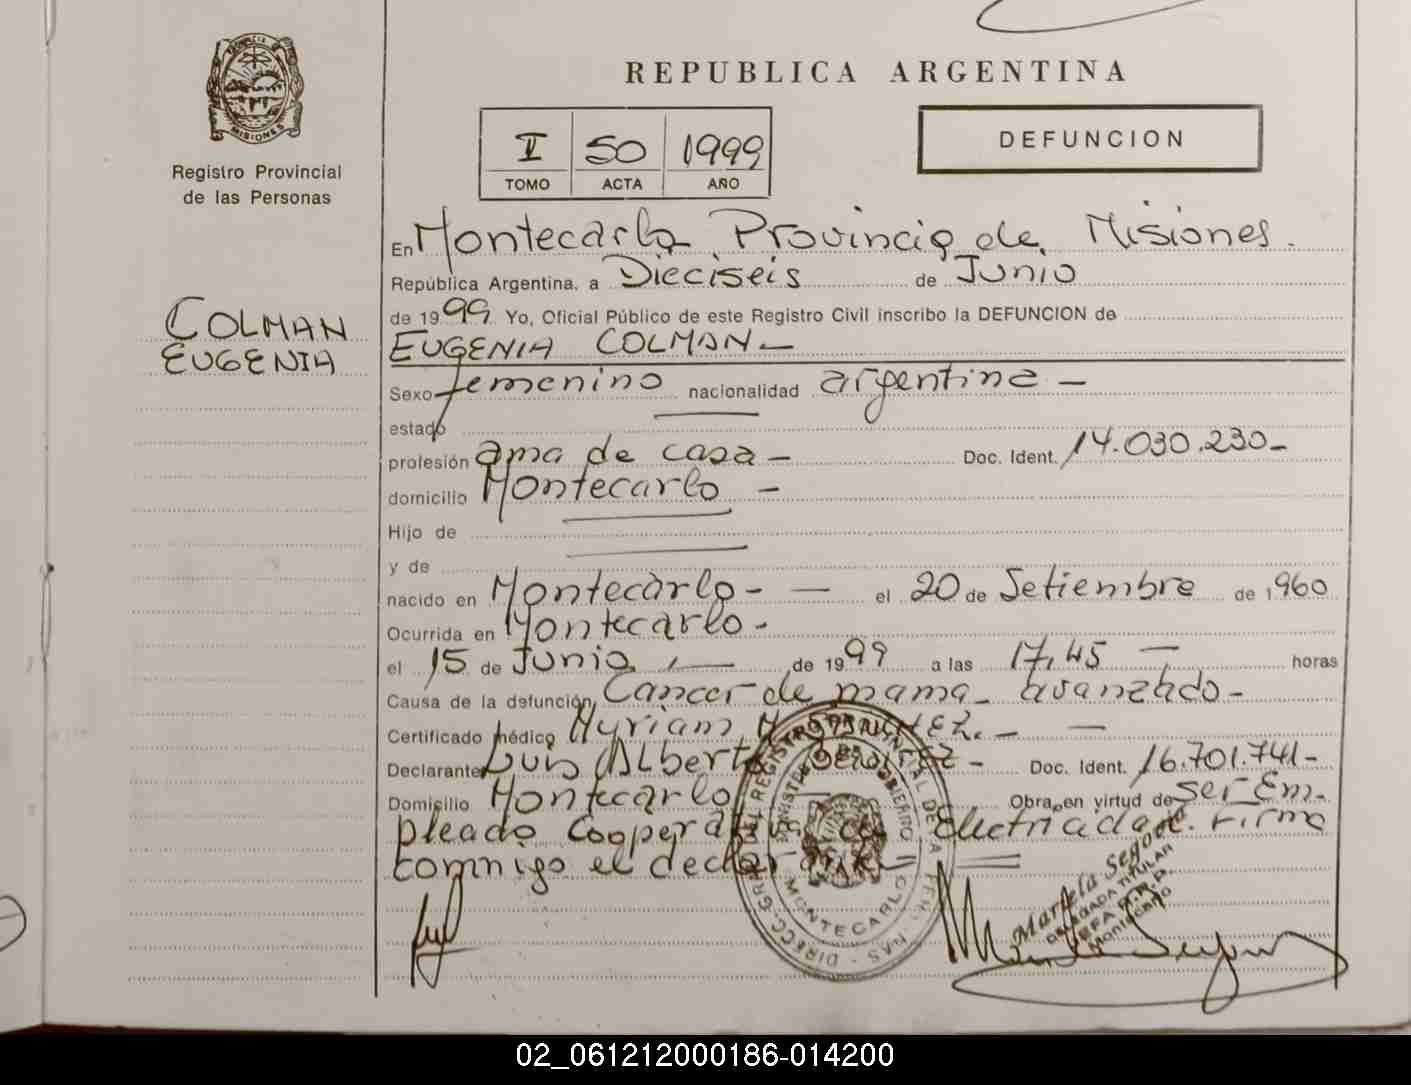 PROVINCIA DE
MISIONES
Registro Provincial
de las Personas
COLMAN
EUGENIA
REPUBLICA ARGENTINA
I 50 1999
TOMO ACTA AÑO
DEFUNCION
En Montecarlo Provincia de Misiones.
República Argentina, a Dieciseis de Junio
de 1999 Yo, Oficial Público de este Registro Civil inscribo la DEFUNCION de
EUGENIA COLMAN -
Sexo femenino nacionalidad argentina -
estado
profesión ama de casa - Doc. Ident. 14.030.230-
domicilio Montecarlo -
Hijo de
y de
nacido en Montecarlo - - el 20 de Setiembre de 1960
Ocurrida en Montecarlo -
el 15 de Junio - de 1999 a las 17,45 - horas
Causa de la defunción Cancer de mama - avanzado -
Certificado médico Myriam -
Declarante Luis Alberto - Doc. Ident. 16.701.741-
Domicilio Montecarlo Obra en virtud de ser Em-
pleado Cooperativa de Electricidad. Firma
conmigo el declarante -
DIRECC. GRAL. DEL REGISTRO PROVINCIAL DE LAS PERSONAS
MINISTERIO DE GOBIERNO
MONTECARLO
Mariela Segovia
DELEGADA TITULAR
JEFA R.P.P.
Montecarlo
02_061212000186-014200